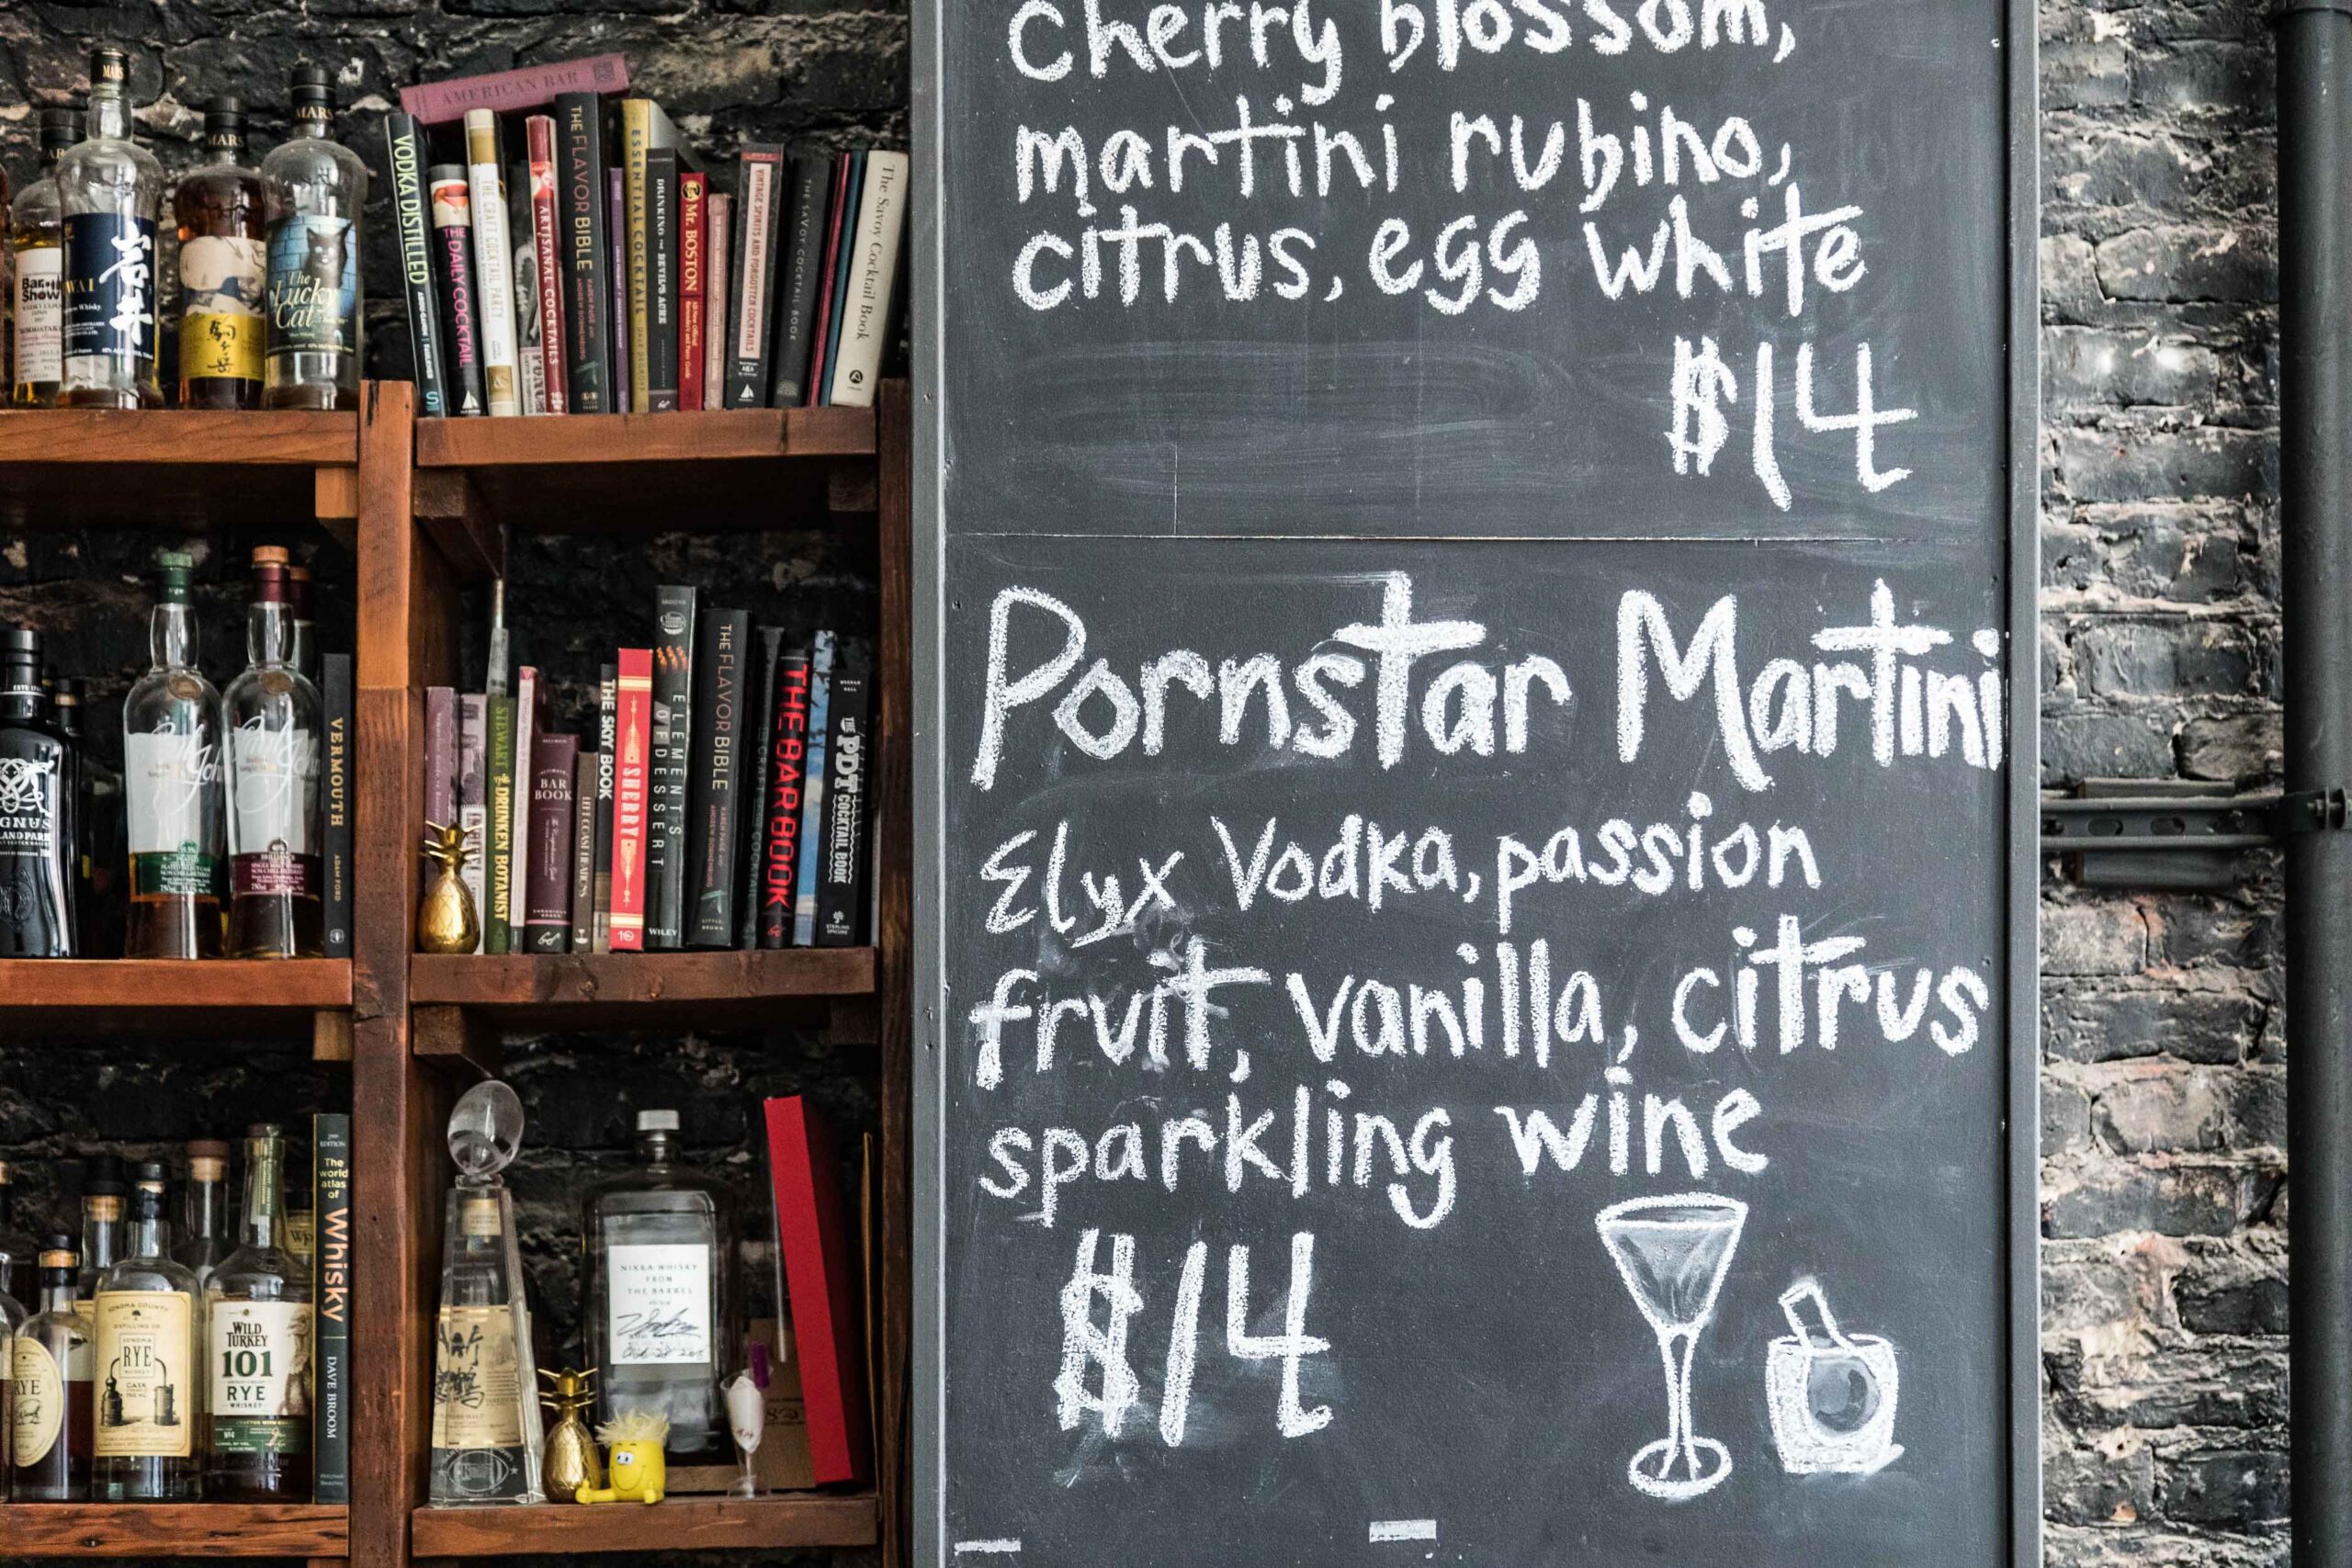 cherry blossom,
martini rubino,
citrus, egg white
$14
Pornstar Martini
Elyx Vodka, passion
fruit, vanilla, citrus
sparkling wine
$14
MARS
MARS
MARS
The
Lucky
Cat
岩井
駒ヶ岳
Bar Show
AMERICAN BAR
VODKA DISTILLED
THE DAILY COCKTAIL
THE CRAFT COCKTAIL PARTY
ARTISANAL COCKTAILS
THE FLAVOR BIBLE
ESSENTIAL COCKTAIL
DRINKING THE DEVIL'S ACRE
Mr. BOSTON
VINTAGE SPIRITS AND FORGOTTEN COCKTAILS
THE SAVOY COCKTAIL BOOK
The Savoy Cocktail Book
VERMOUTH
ADAM FORD
STEWART
THE DRUNKEN BOTANIST
BAR
BOOK
LEFT COAST LIBATIONS
THE SKYY BOOK
SHERRY
ELEMENTS
OF DESSERT
WILEY
THE FLAVOR BIBLE
LITTLE
BROWN
THE BAR BOOK
THE PDT COCKTAIL BOOK
2ND
EDITION
The
world
atlas
of
Whisky
DAVE BROOM
SONOMA COUNTY
DISTILLING CO
SONOMA
RYE
WHISKEY
CASK
RYE
WILD
TURKEY
101
RYE
WHISKEY
NIKKA WHISKY
FROM
THE BARREL